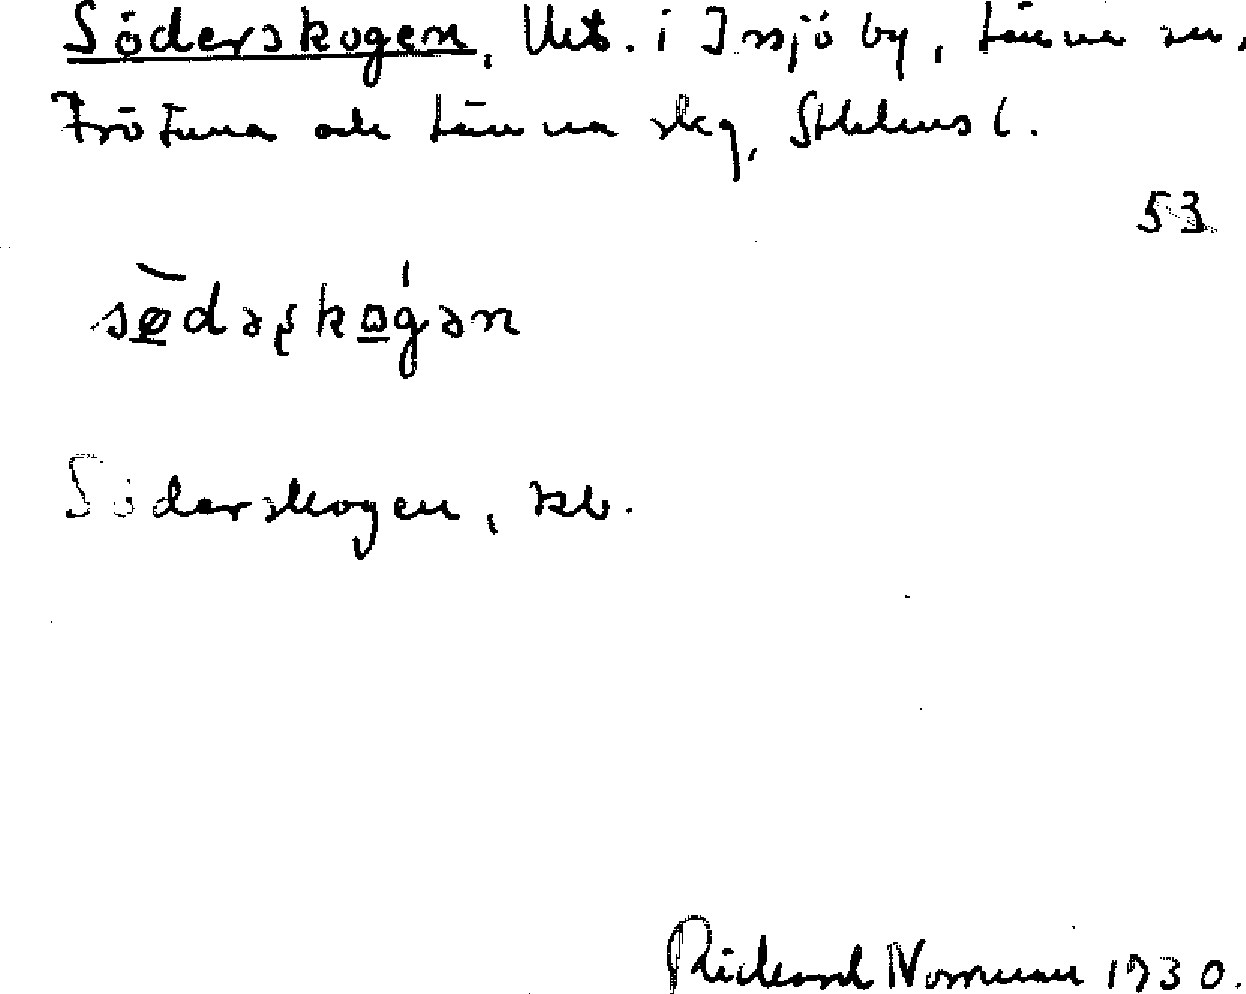 Söderskogen, Utt. i Insjö by, Länna sn,
Frötuna och Länna skg, Sthlms l.
53
sø̲̀dəʂkɷ̲́gən
Söderskogen, kb.
Rickard Norrman 1930.